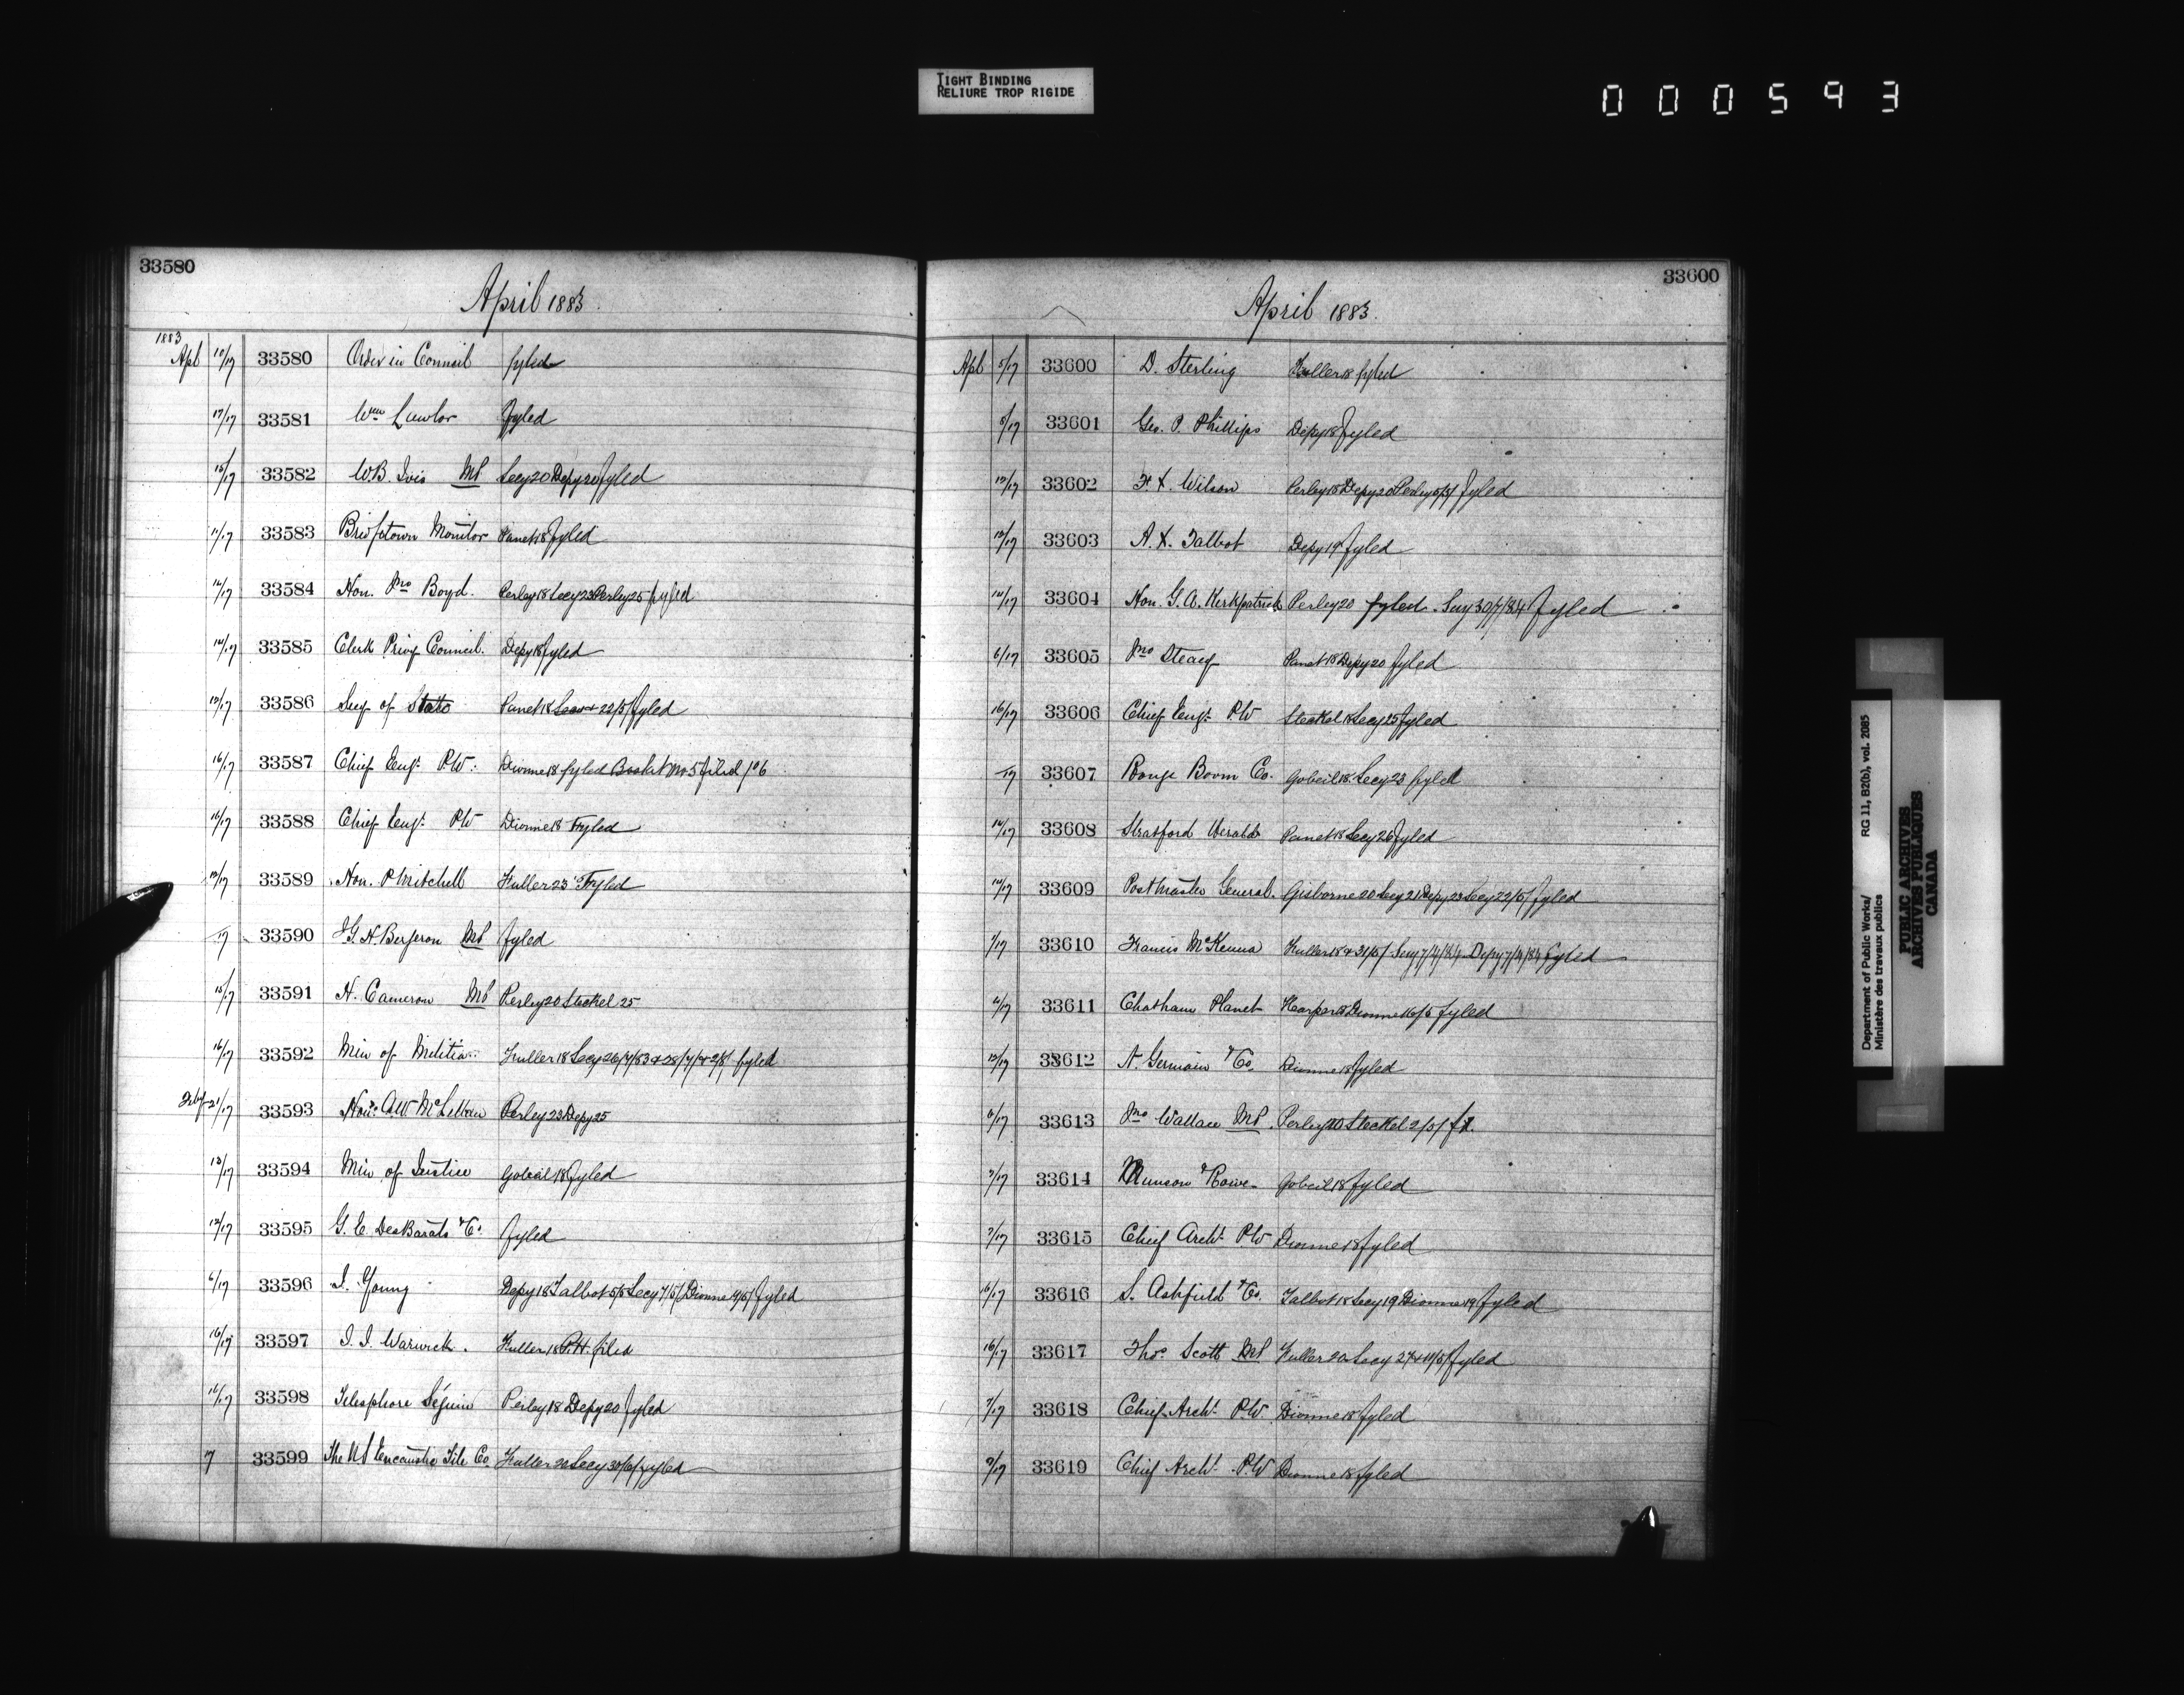 TIGHT BINDING
RELIURE TROP RIGIDE
000593
33580
April 1883.
1883
Apl 10/17 33580 Order in Council fyled
17/17 33581 Wm Lawlor fyled
16/17 33582 W.B. Ivis MP Secy 20 Depy 20 fyled
11/17 33583 Bridgetown Monitor Panet 18 fyled
16/17 33584 Hon. Jno Boyd. Perley 18 Secy 23 Perley 25 fyled
14/17 33585 Clerk Privy Council. Depy 18 fyled
33586 Secy of State Panet 18 22/5/ fyled
16/17 33587 Chief Engr. P.W. Dionne 18 fyled Basket No 5 filed
16/17 33588 Chief Engr. PW Dionne 18 Fyled
33589 Hon. P Mitchell Fuller 23 Fyled
17 33590 J G. H. Bergeron MP fyled
15/17 33591 H. Cameron MP Perley 20 Steckel 25
16/17 33592 Min of Militia Fuller 18 Secy 26/7/83 & 28/7/ & 2/8/ fyled
Feby 21/17 33593 Hon. A W McLellan Perley 23 Depy 25
13/17 33594 Min of Justice Gobeil 18 fyled
12/17 33595 G. E. DesBarats & Co. fyled
6/17 33596 I. Young Depy 18 Talbot 5/5 Secy 7/5/ Dionne fyled
16/17 33597 I. I. Warwick. Fuller 18 P.H. filed
16/17 33598 Telesphore Séguin Perley 18 Depy 20 fyled
7 33599 The US Encaustic Tile Co. Fuller 20 Secy 30/6/ fyled
33600
April 1883.
Apl 5/17 33600 D. Sterling Fuller 18 fyled
5/17 33601 Geo. P. Phillips Depy 18 fyled
33602 F. X. Wilson Perley 18 Depy 20 Perley 5/5/ fyled
33603 A. X. Talbot Depy 19 fyled
14/17 33604 Hon. G. A. Kirkpatrick Perley 20 fyled. Secy 30/7/84 fyled
6/17 33605 Jno Steacy Panet 18 Depy 20 fyled
16/17 33606 Chief Engr. PW Steckel 18 Secy 25 fyled
17 33607 Rouge Boom Co. Gobeil 18 Secy 23 fyled
14/17 33608 Stratford Herald Panet 18 Secy 26 fyled
14/17 33609 Postmaster General. Gisborne 20 Secy 21 Depy 23 Secy 22/5/ fyled
7/17 33610 Francis McKenna Fuller 18 & 31/5/ Secy 7/4/84 Depy 7/4/84 fyled
33611 Chatham Planet Harper 18 Dionne 16/5 fyled
33612 N. Germain & Co. Dionne 18 fyled
33613 Jno Wallace MP. Perley 20 Steckel 2/5/ fd.
7/17 33614 Munson & Rowe Gobeil 18 fyled
7/17 33615 Chief Archt. PW Dionne 18 fyled
16/17 33616 S. Ashfield & Co. Talbot 18 Secy 19 Dionne 19 fyled
16/17 33617 Thos. Scott MP. Fuller 20 Secy 27 & 11/5/ fyled
7/17 33618 Chief Archt. P.W. Dionne 18 fyled
9/17 33619 Chief Archt. P.W Dionne 18 fyled
Department of Public Works/ RG 11, B2(b), vol. 2085
Ministère des travaux publics
PUBLIC ARCHIVES
ARCHIVES PUBLIQUES
CANADA